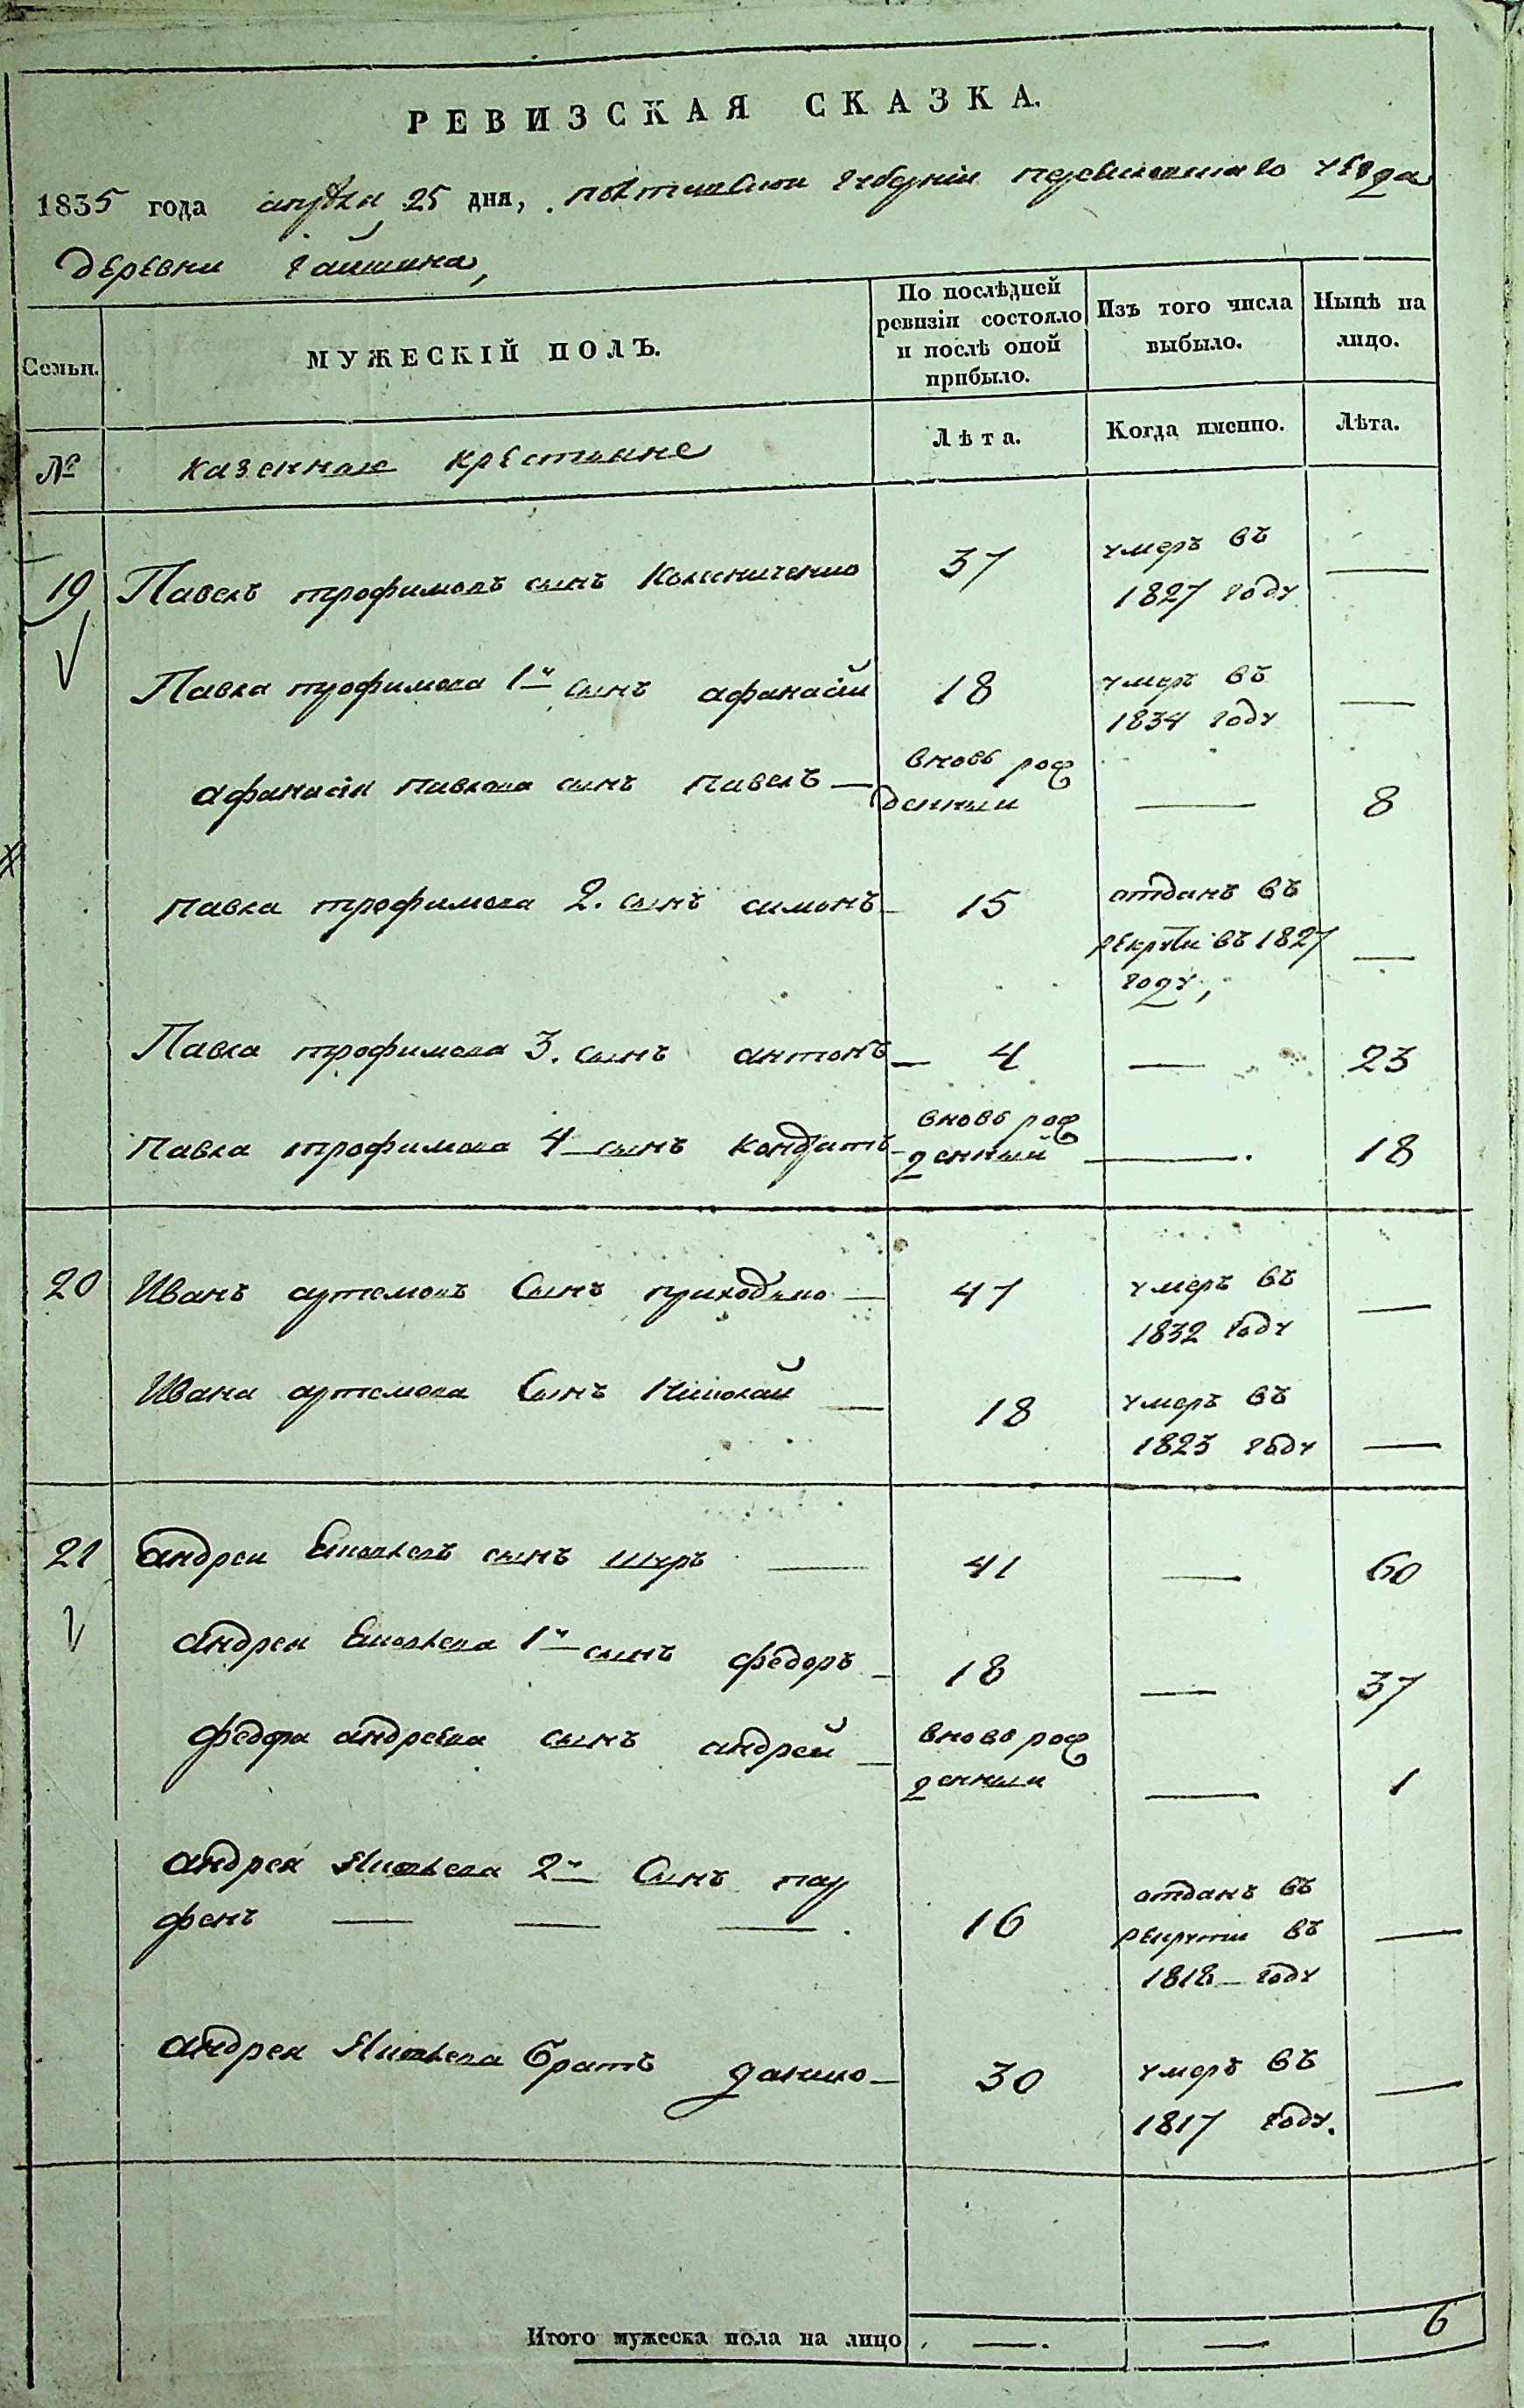 РЕВИЗСКАЯ СКАЗКА.
1835 года апреля 25 дня, полтавской губерніи переяславскаго уезда
деревни гайшина,
Семьи.
МУЖЕСКІЙ ПОЛЪ.
По послѣдней
ревизіи состояло
и послѣ оной
прибыло.
Изъ того числа
выбыло.
Нынѣ на
лицо.
№
казенные крестьяне
Лѣта.
Когда именно.
Лѣта.
19 Павелъ трофимовъ сынъ Колесниченко 37 умеръ въ
1827 году —
Павла трофимова 1й сынъ афанасій 18 умеръ въ
1834 году —
афанасія павлова сынъ павелъ — вновь рож
денныи — 8
павла трофимова 2. сынъ симонъ — 15 отданъ въ
рекруты въ 1827 —
году,
Павла трофимова 3. сынъ антонъ — 4 — 23
павла трофимова 4 сынъ кондратъ — вновь рож
денный — 18
20 Иванъ артемовъ сынъ приходько — 47 умеръ въ
1832 году —
Ивана артемова сынъ Николай — 18 умеръ въ
1823 году —
21 андреи сынъ шкуръ — 41 — 60
андрея 1й сынъ федоръ — 18 — 37
федора андреева сынъ андрей — вновь рож
денныи — 1
андрея 2й сынъ пар
фенъ — — —. 16 отданъ въ
рекруты въ —
1818 году
андрея братъ данило — 30 умеръ въ
1817 году. —
Итого мужеска пола на лицо — — 6